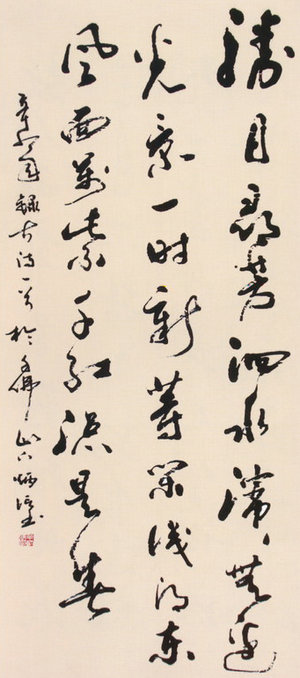 勝日尋芳泗水濱無邊
光景一時新等閒識得東
風面萬紫千紅總是春
錄古詩一首於